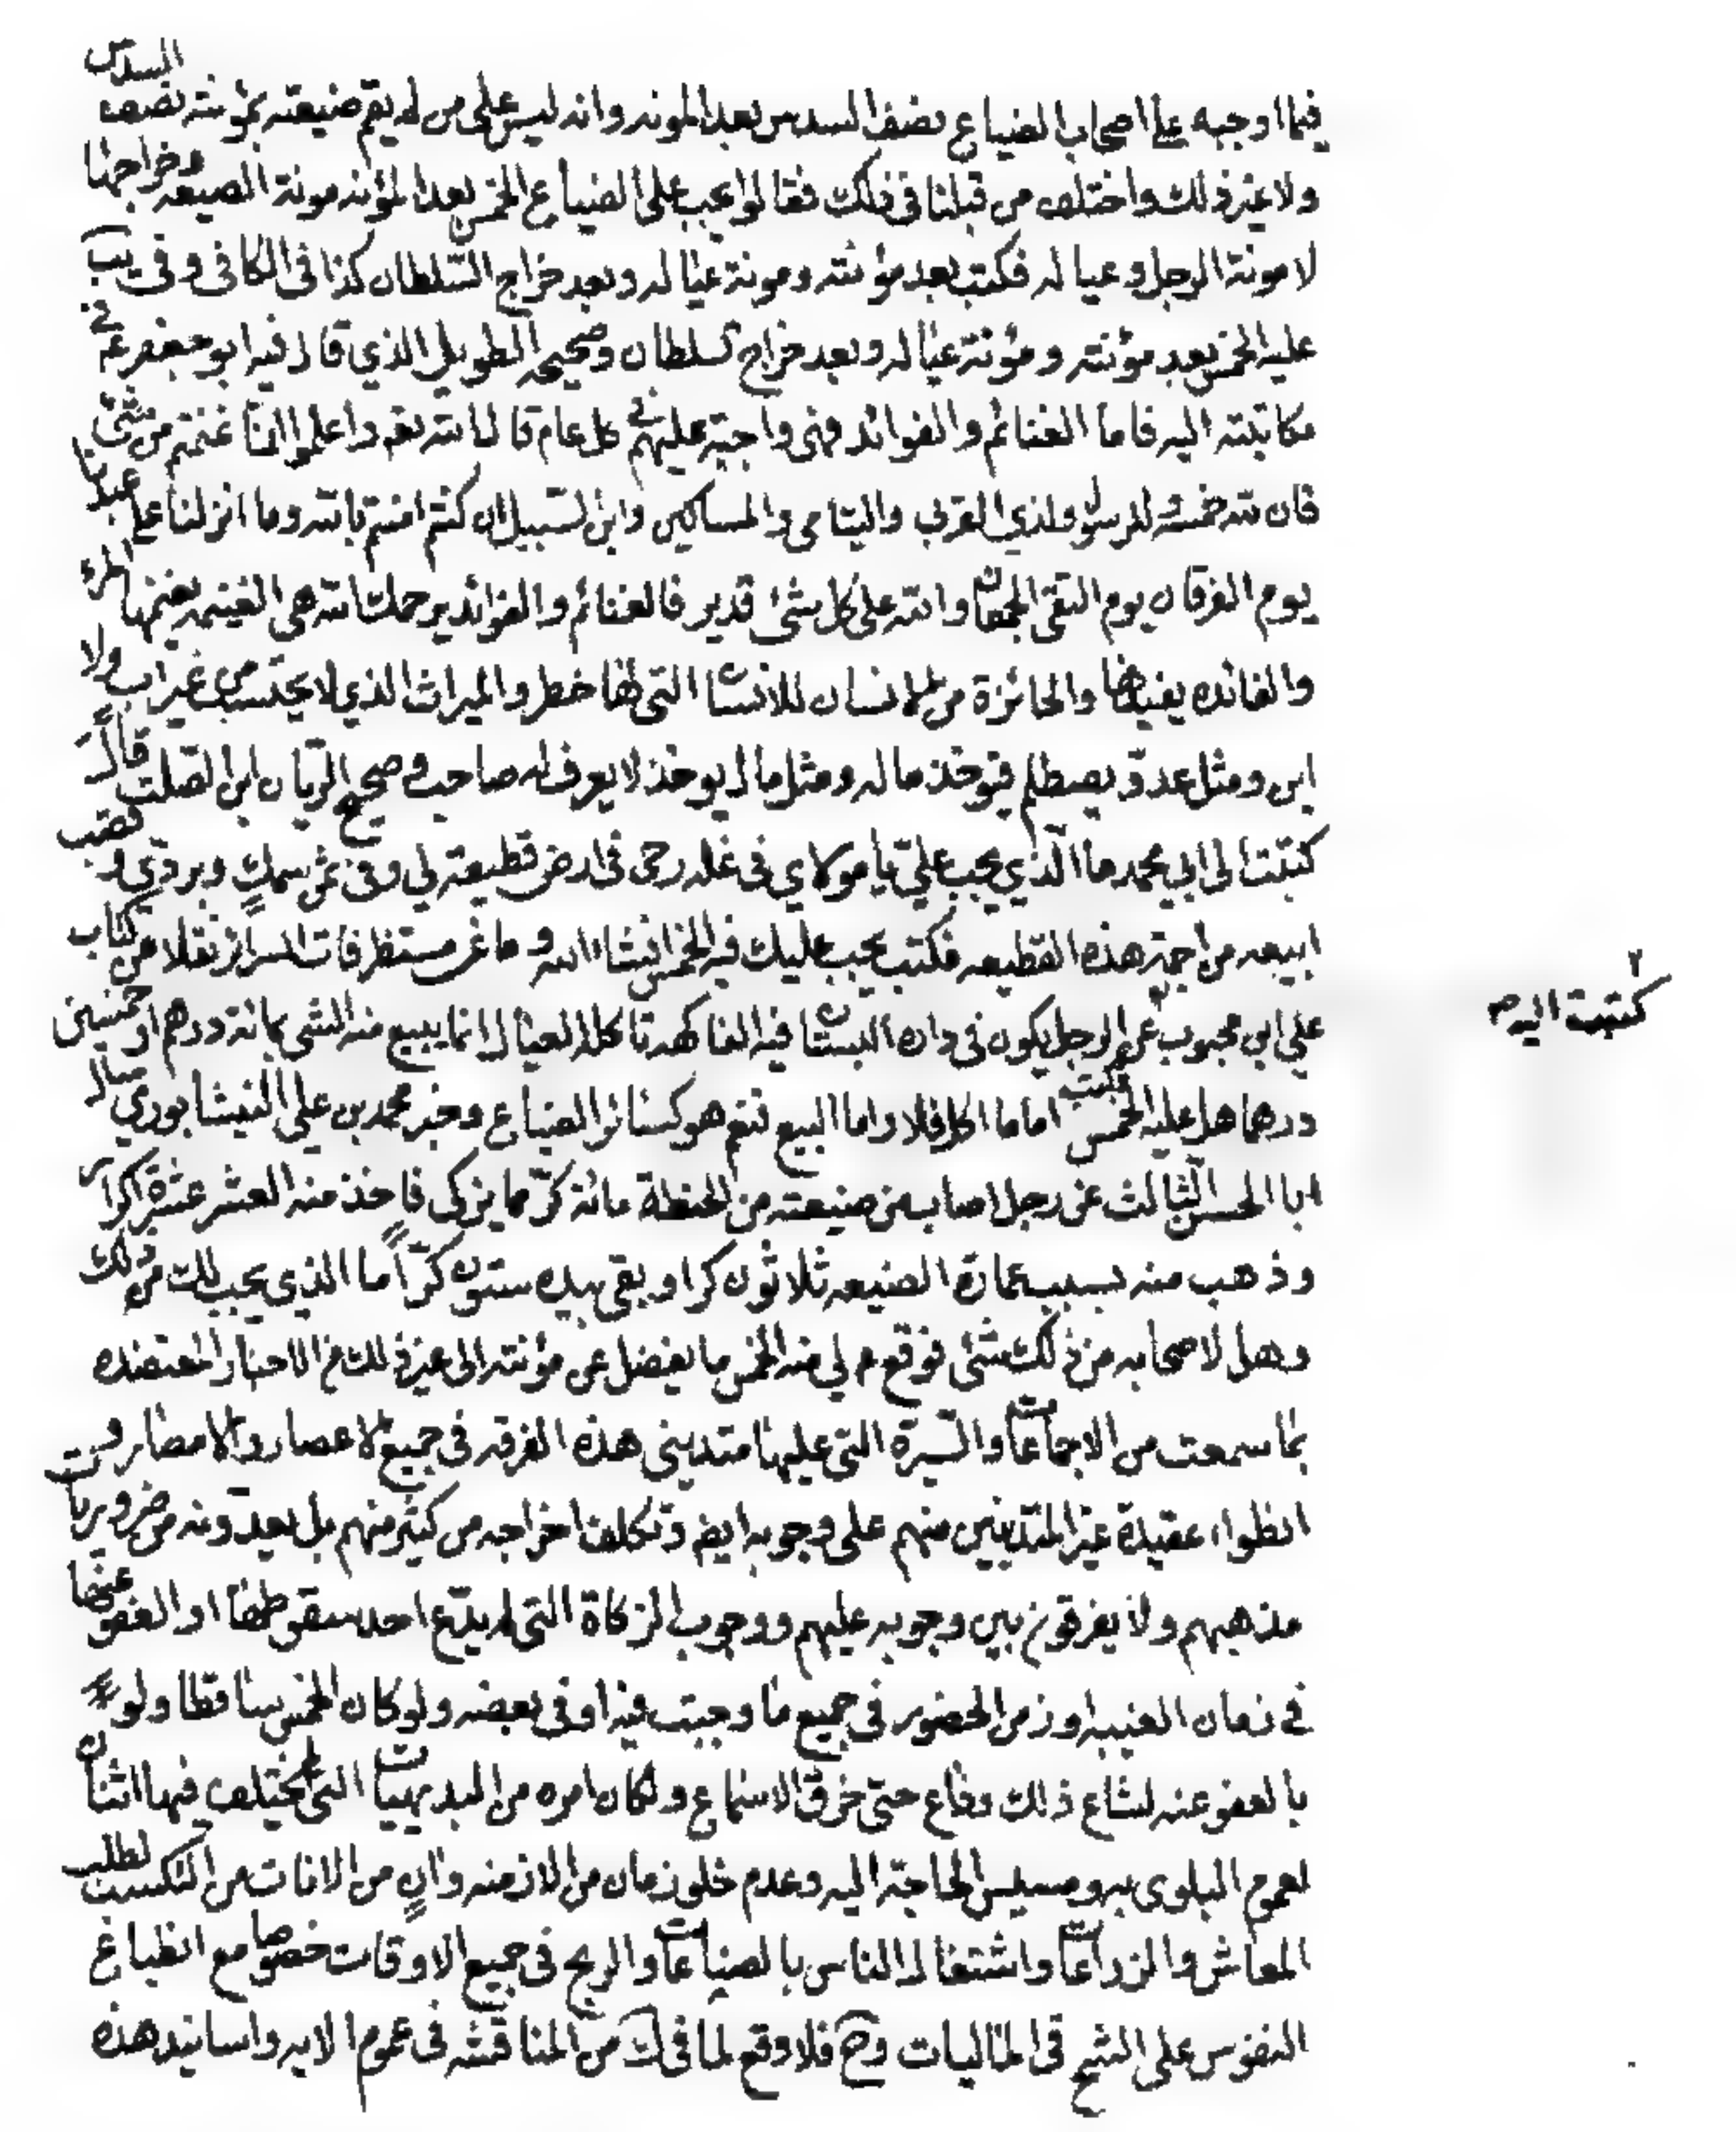 فيما اوجبه على اصحاب الضياع نصف السدس بعد المونه وانه ليس على من لم يقم ضيعته بمؤنته نصف السدس
ولا غير ذلك واختلف من قبلنا في ذلك فقالوا يجب على الضياع الخمس بعد المؤنه مونة الضيعه وخراجها
لا مونة الرجل وعياله فكتب بعد مؤنته ومونة عياله وبعد خراج السلطان كذا في الكافي وفي يب
عليه الخمس بعد مؤنته ومؤنة عياله وبعد خراج السلطان وصحيحه الطويل الذي قال فيه ابو جعفر ع في
مكاتبته اليه فاما الغنائم والفوائد فهي واجبة عليهم في كل عام قال الله تعم واعلموا انما غنمتم من شئ
فان لله خمسه وللرسول ولذي القربى واليتامى والمساكين وابن السبيل ان كنتم امنتم بالله وما انزلنا على عبدنا
يوم الفرقان يوم التقى الجمعان والله على كل شئ قدير فالغنائم والفوائد يرحمك الله هي الغنيمه يغنمها المرء
والفائده يفيدها والجائزة من الانسان للانسان التي لها خطر والميراث الذي لا يحتسب من غير اب ولا
ابن ومثل عدو يصطلم فيوخذ ماله ومثل مال يوخذ لا يعرف له صاحب وصحيح الريان ابن الصلت قال
كتبت الى ابي محمد ما الذي يجب علي يا مولاي في غله رحى في ارض قطيعة لي وفي ثمن سمك وبردي وقصب
ابيعه من اجمة هذه القطيعه فكتب يجب عليك فيه الخمس انشاء الله وما عن مستطرفات السرائر نقلا من كتاب
علي ابن محبوب عن الرجل يكون في داره البستان فيه الفاكهة تاكله العيال انما يبيع منه الشئ بمائة درهم او خمسين
كتبت اليه
درهما هل عليه الخمس فكتب اما ما اكل فلا واما البيع فنعم هو كسائر الضياع وخبر محمد بن علي النيشابوري سال
ابا الحسن الثالث عن رجل اصاب من ضيعته من الحنطة مائة كر ما يزكى فاخذ منه العشر عشرة اكرار
وذهب منه بسبب عمارة الضيعه ثلاثون كرا وبقي بيده ستون كرا ما الذي يجب لك من ذلك
وهل لاصحابه من ذلك شئ فوقع لي منه الخمس مما يفضل عن مؤنته الى غير ذلك من الاخبار المعتضده
بما سمعت من الاجماعات والسيرة التي عليها متديني هذه الفرقه في جميع الاعصار والامصار و
انطواء عقيدة غير المتدينين منهم على وجوبه ايض وتكلف اخراجه من كثير منهم بل يعدونه من ضروريات
مذهبهم ولا يفرقون بين وجوبه عليهم ووجوب الزكاة التي لم يدع احد سقوطها او العفو عنها
في زمان الغيبه او زمن الحضور في جميع ما وجبت فيه او في بعضه ولو كان الخمس ساقطا ولو
بالعفو عنه لشاع ذلك وذاع حتى خرق الاسماع ولكان امره من البديهيات التي لم يختلف فيها اثنان
لعموم البلوى به ومسيس الحاجة اليه وعدم خلو زمان من الازمنه وان من الانات من التكسب لطلب
المعاش والزراعات واشتغال الناس بالصناعات والربح في جميع الاوقات خصوصا مع انطباع
النفوس على الشح في الماليات وح فلا وقع لما في ك من المناقشه في عموم الايه واسانيد هذه